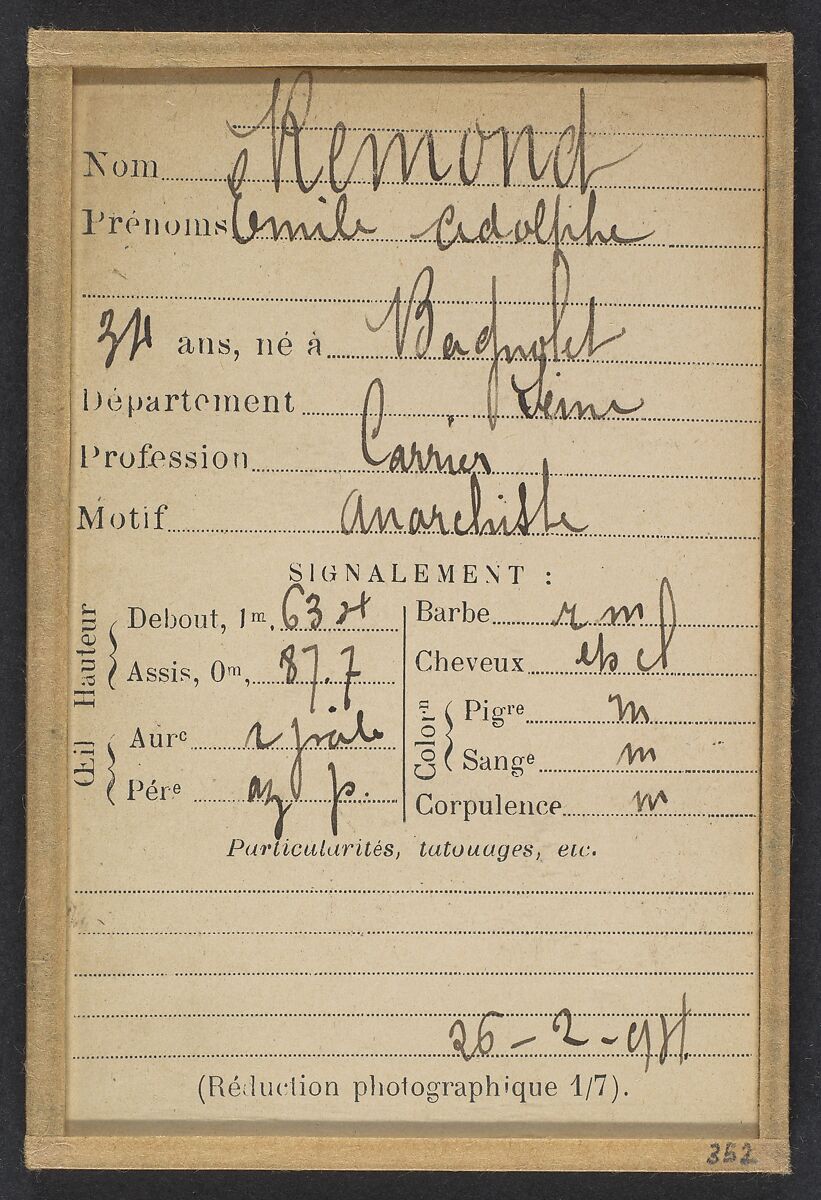 Nom Remond
Prénoms Emile Adolphe
34 ans, né à Bagnolet
Département Seine
Profession Carrier
Motif anarchiste
SIGNALEMENT :
Hauteur
Debout, 1m, 63 4
Assis, 0m, 87.7
Œil
Aurᵉ r pâle
Pérᵉ az p.
Barbe r m
Cheveux
Colorⁿ
Pigʳᵉ m
Sangᵉ m
Corpulence m
Particularités, tatouages, etc.
26 - 2 - 94.
(Réduction photographique 1/7).
352